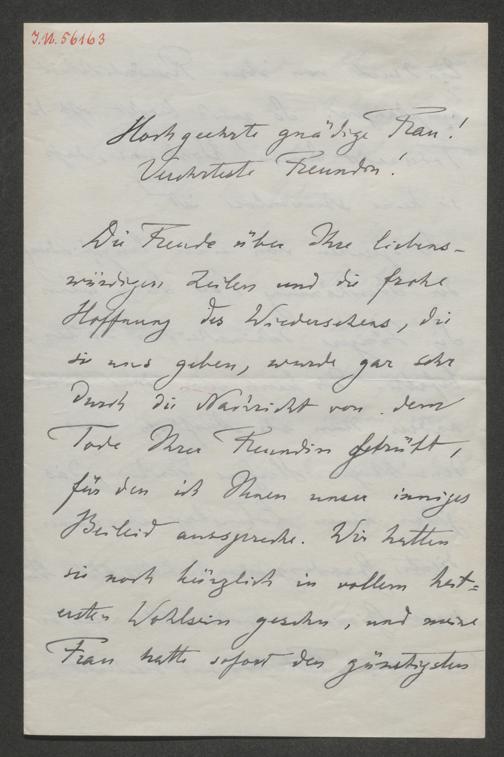 J.N. 56163
Hochgeehrte gnädige Frau!
Verehrteste Freundin!
Die Freude über Ihre liebens-
würdigen Zeilen und die frohe
Hoffnung des Wiedersehens, die
sie uns geben, wurde gar sehr
durch die Nachricht von dem
Tode Ihrer Freundin getrübt,
für den ich Ihnen unser inniges
Beileid ausspreche. Wir hatten
sie noch kürzlich in vollem heit=
ersten Wohlsein gesehen, und meine
Frau hatte sofort den günstigsten